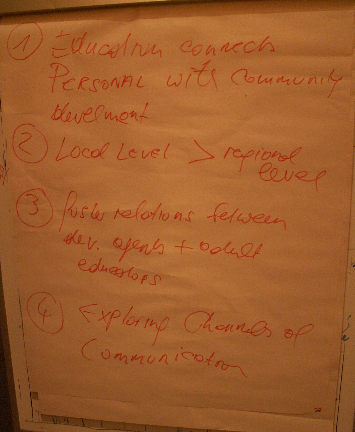 1 Education connects
PERSONAL with Community
develoment
2 Local Level > regional
level
3 Foster relations between
dev. agents + adult
educators
4 Exploring Channels of
Communication